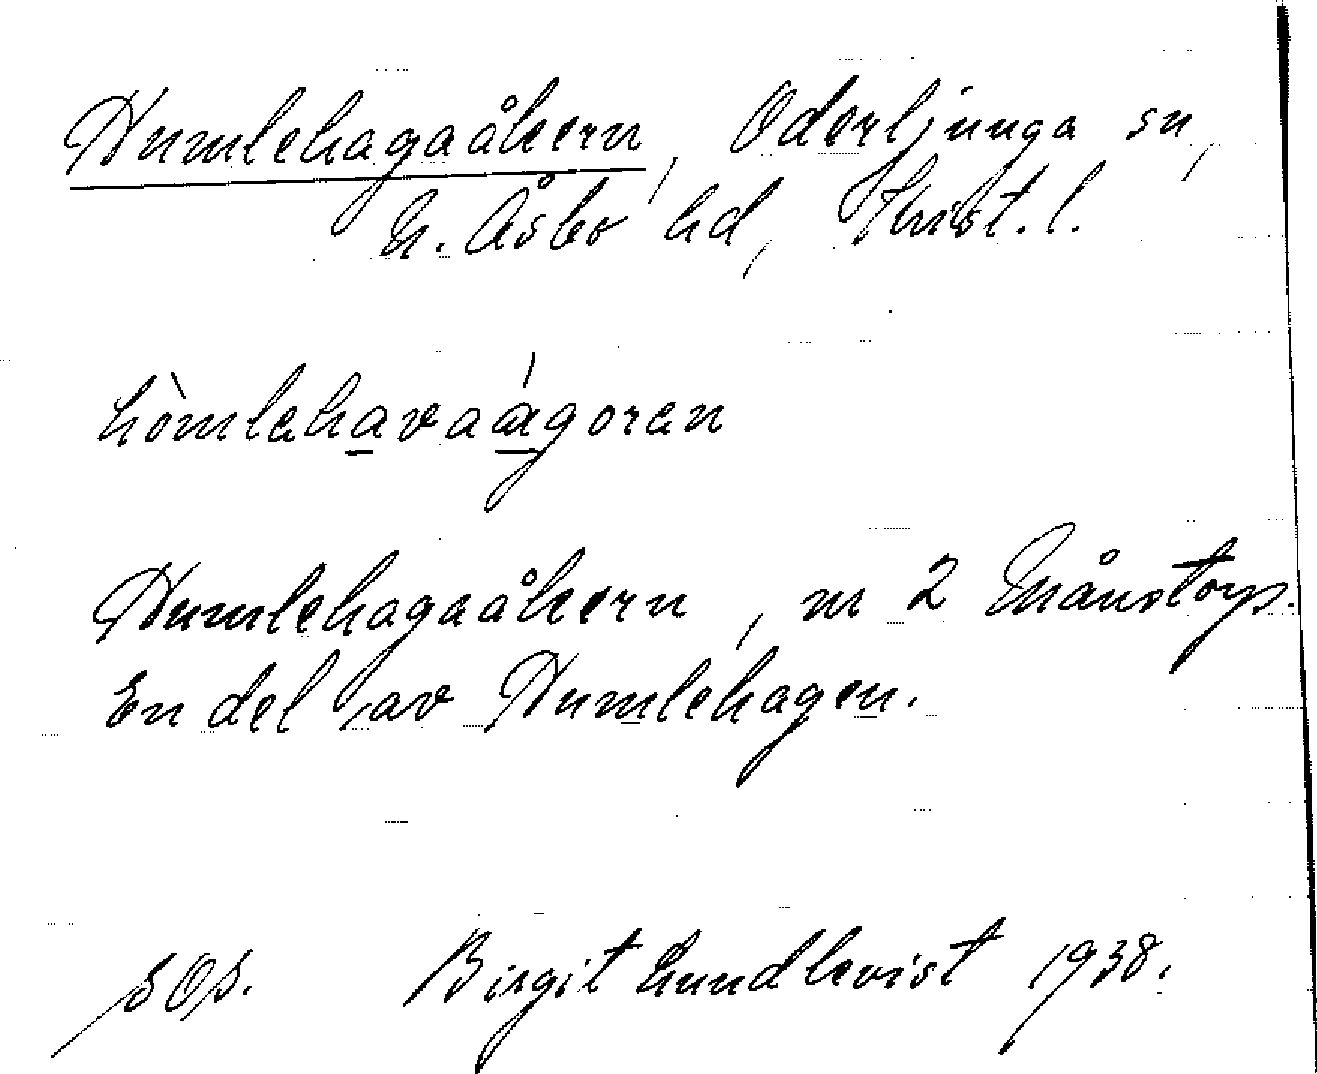 Humlehagaåkern, Oderljunga sn,
N. Åsbo hd, Krist. l.
hòmlehavaágoren
Humlehagaåkern, nr 2 Månstorp.
En del av Humlehagen.
Birgit Lundkvist 1938.